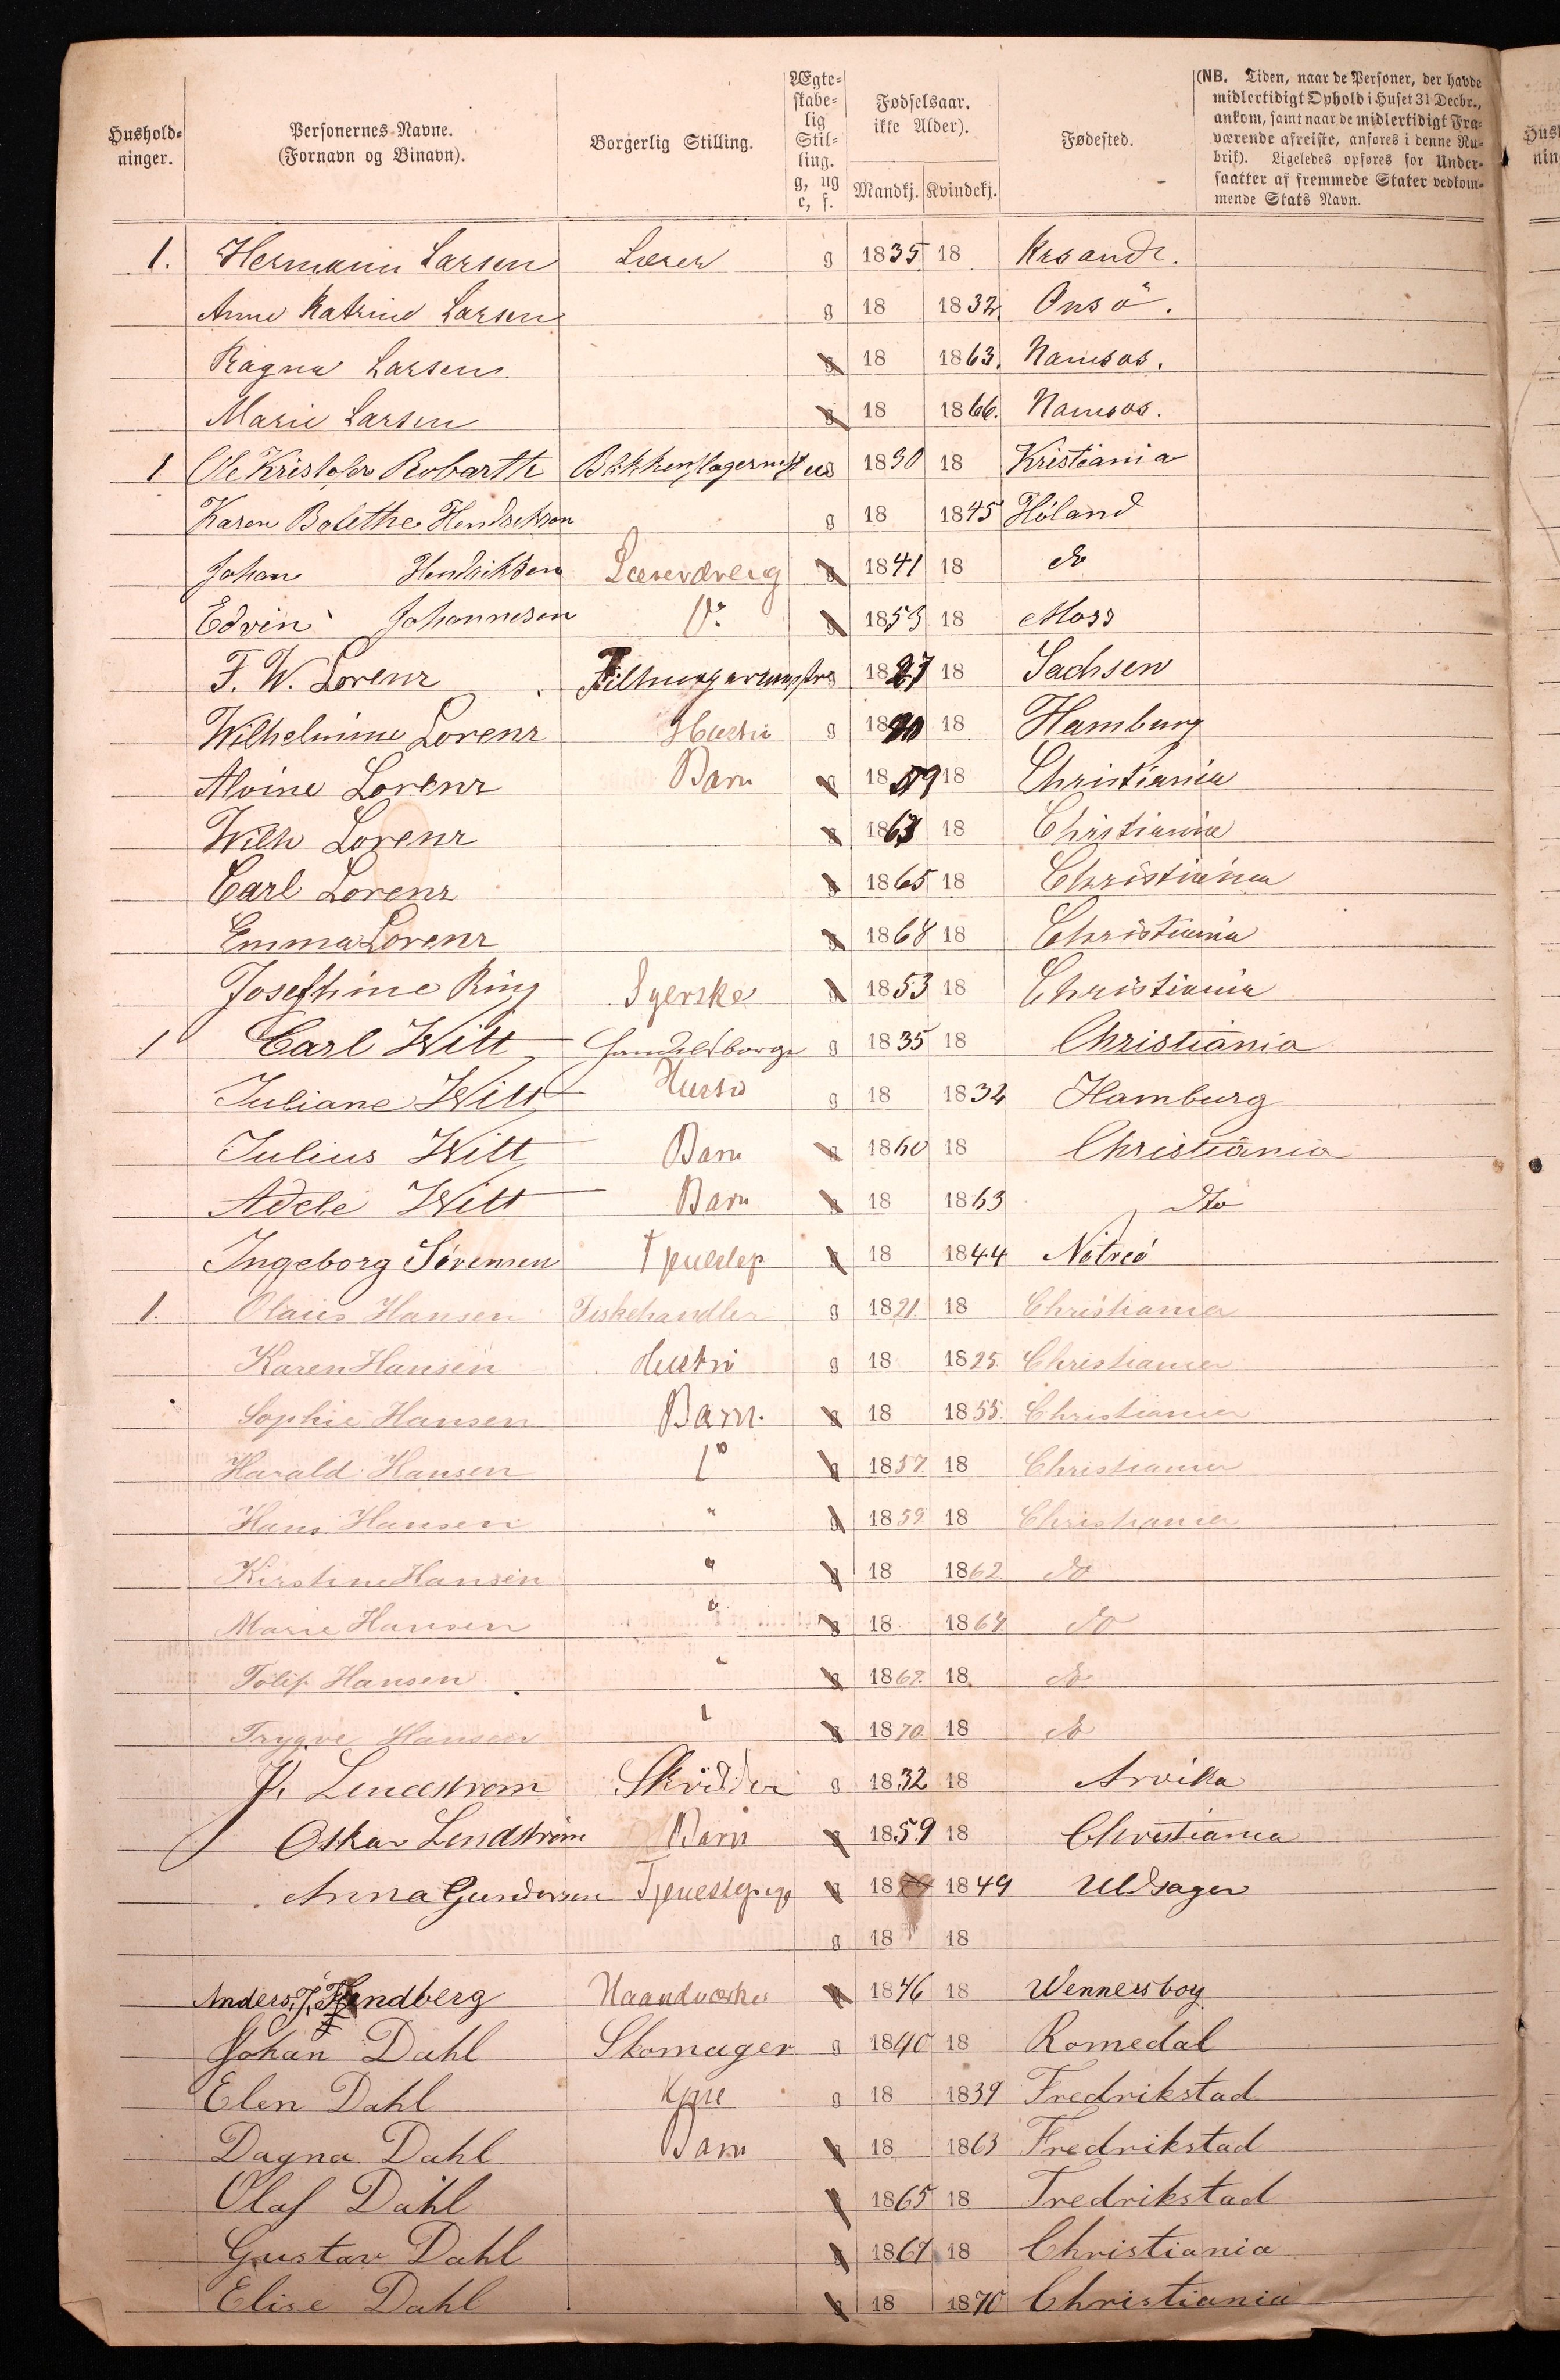 Hushold-
ninger.
Personernes Navne.
(Fornavn og Binavn).
Borgerlig Stilling.
Ægte-
skabe-
lig
Stil-
ling.
g, ug
e, f.
Fødselsaar.
ikke Alder).
Mandkj. Kvindekj.
Fødested.
(NB. Tiden, naar de Personer, der havde
midlertidigt Ophold i Huset 31 Decbr.,
ankom, samt naar de midlertidigt Fra-
værende afreiste, anføres i denne Ru-
brik). Ligeledes opføres for Under-
saatter af fremmede Stater vedkom-
mende Stats Navn.
1. Hermann Larsen Lærer g 1835 18 Krsandr.
Anne Katrine Larsen g 18 1832 Onsö.
Ragna Larsen g 18 1863. Namsos.
Marie Larsen g 18 1866. Namsos.
1 Ole Kristofer Robarth 1830 18 Kristiania
Karen Bolethe Hendriksen g 18 1845 Høland
Johan Hendriksen g 1841 18 do
Edvin Johannesen Do g 1853 18 Moss
F. W. Lorenz g 1827 18 Sachsen
Wilhelmine Lorenz Hustru g 18 18 Hamburg
Alvine Lorenz Barn g 1859 18 Christiania
Wilh Lorenz g 1863 18 Christiania
Carl Lorenz g 1865 18 Christiania
Emma Lorenz g 1868 18 Christiania
Josephine Ring Syerske g 1853 18 Christiania
1 Carl Witt Handelsborger g 1835 18 Christiania
Juliane Witt Hustru g 18 1832 Hamburg
Julius Witt Barn g 1860 18 Christiania
Adele Witt Barn g 18 1863 do
Ingeborg Sørensen Tjenestep g 18 1844
1. Olaus Hansen Fiskehandler g 1821. 18 Christiania
Karen Hansen Hustru g 18 1825 Christiania
Sophie Hansen Barn. g 18 1855. Christiania
Harald Hansen Do g 1857. 18 Christiania
Hans Hansen " g 1859 18 Christiania
Kirstine Hansen " g 18 1862 do
Marie Hansen " g 18 1864 do
Hansen " g 1867. 18 do
Trygve Hansen " g 1870 18 do
Lindstrøm Skrædder g 1832 18 Arvika
Oskar Lindstrøm Barn g 1859 18 Christiania
Anna Gundersen Tjenestepige g 18 1849 Uldsager
g 18 18
Anders. J. Haandværker g 1846 18 Wennersborg
Johan Dahl Skomager g 1840 18 Romedal
Elen Dahl Kone g 18 1839 Fredrikstad
Dagna Dahl Barn g 18 1863 Fredrikstad
Olaf Dahl g 1865 18 Fredrikstad
Gustav Dahl g 1867 18 Christiania
Elise Dahl g 18 1870 Christiania